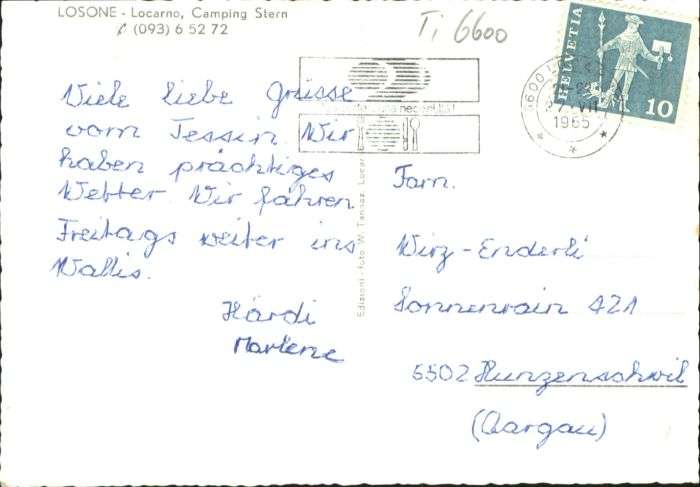 LOSONE - Locarno, Camping Stern
✆ (093) 6 52 72
Ti 6600
HELVETIA
10
6600
1965
Viele liebe Grüsse
vom Tessin. Wir
haben prächtiges
Wetter. Wir fahren
Freitags weiter ins
Wallis.
Härdi
Marlene
Edizioni - foto W. Tannaz, Locar
Fam.
Wirz-Enderli
Sonnenrain 421
5502 Hunzenschwil
(Aargau)